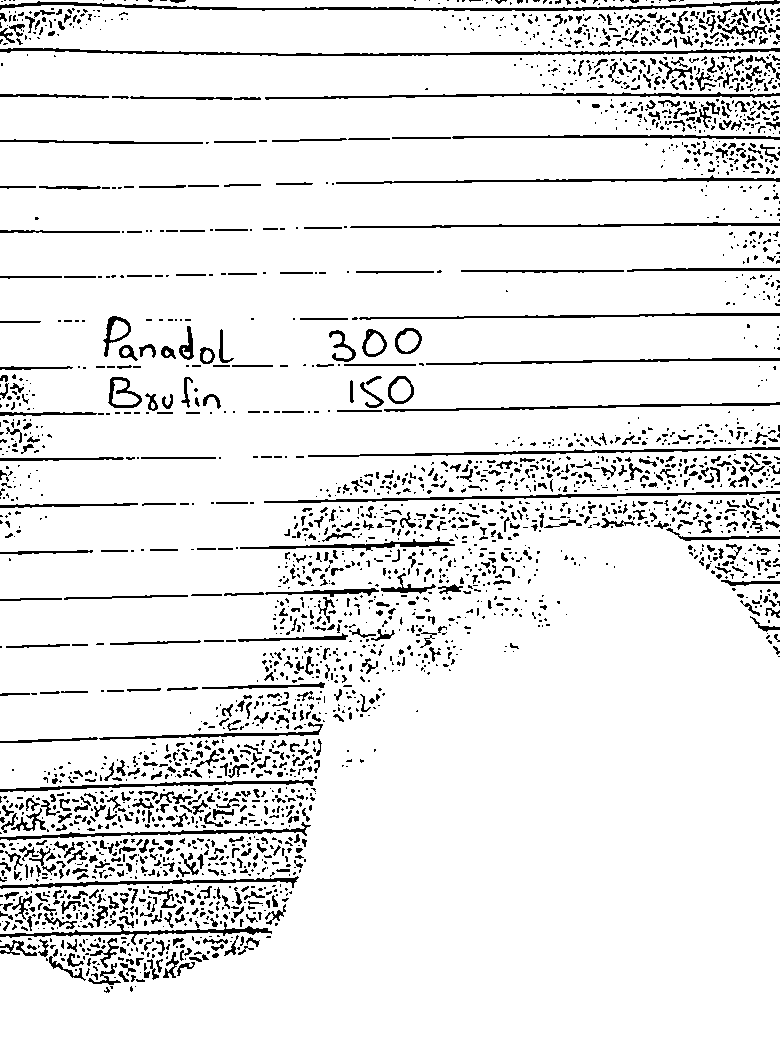 Panadol 300
Brufin 150